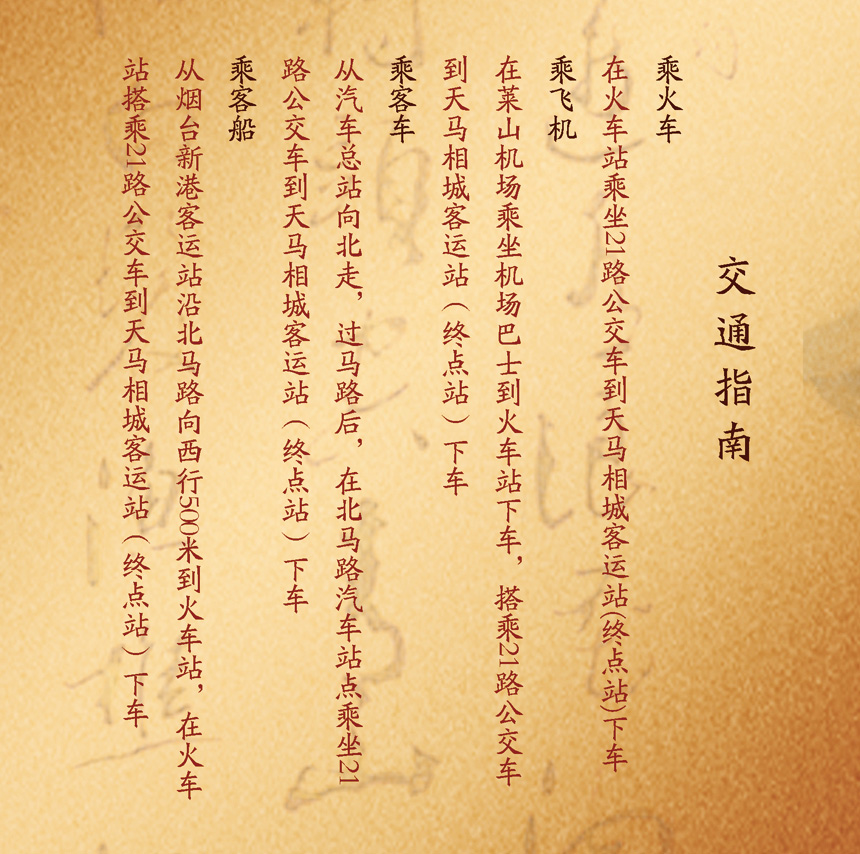 交通指南
乘火车
在火车站乘坐21路公交车到天马相城客运站(终点站)下车
乘飞机
在莱山机场乘坐机场巴士到火车站下车，搭乘21路公交车
到天马相城客运站（终点站）下车
乘客车
从汽车总站向北走，过马路后，在北马路汽车站点乘坐21
路公交车到天马相城客运站（终点站）下车
乘客船
从烟台新港客运站沿北马路向西行500米到火车站，在火车
站搭乘21路公交车到天马相城客运站（终点站）下车